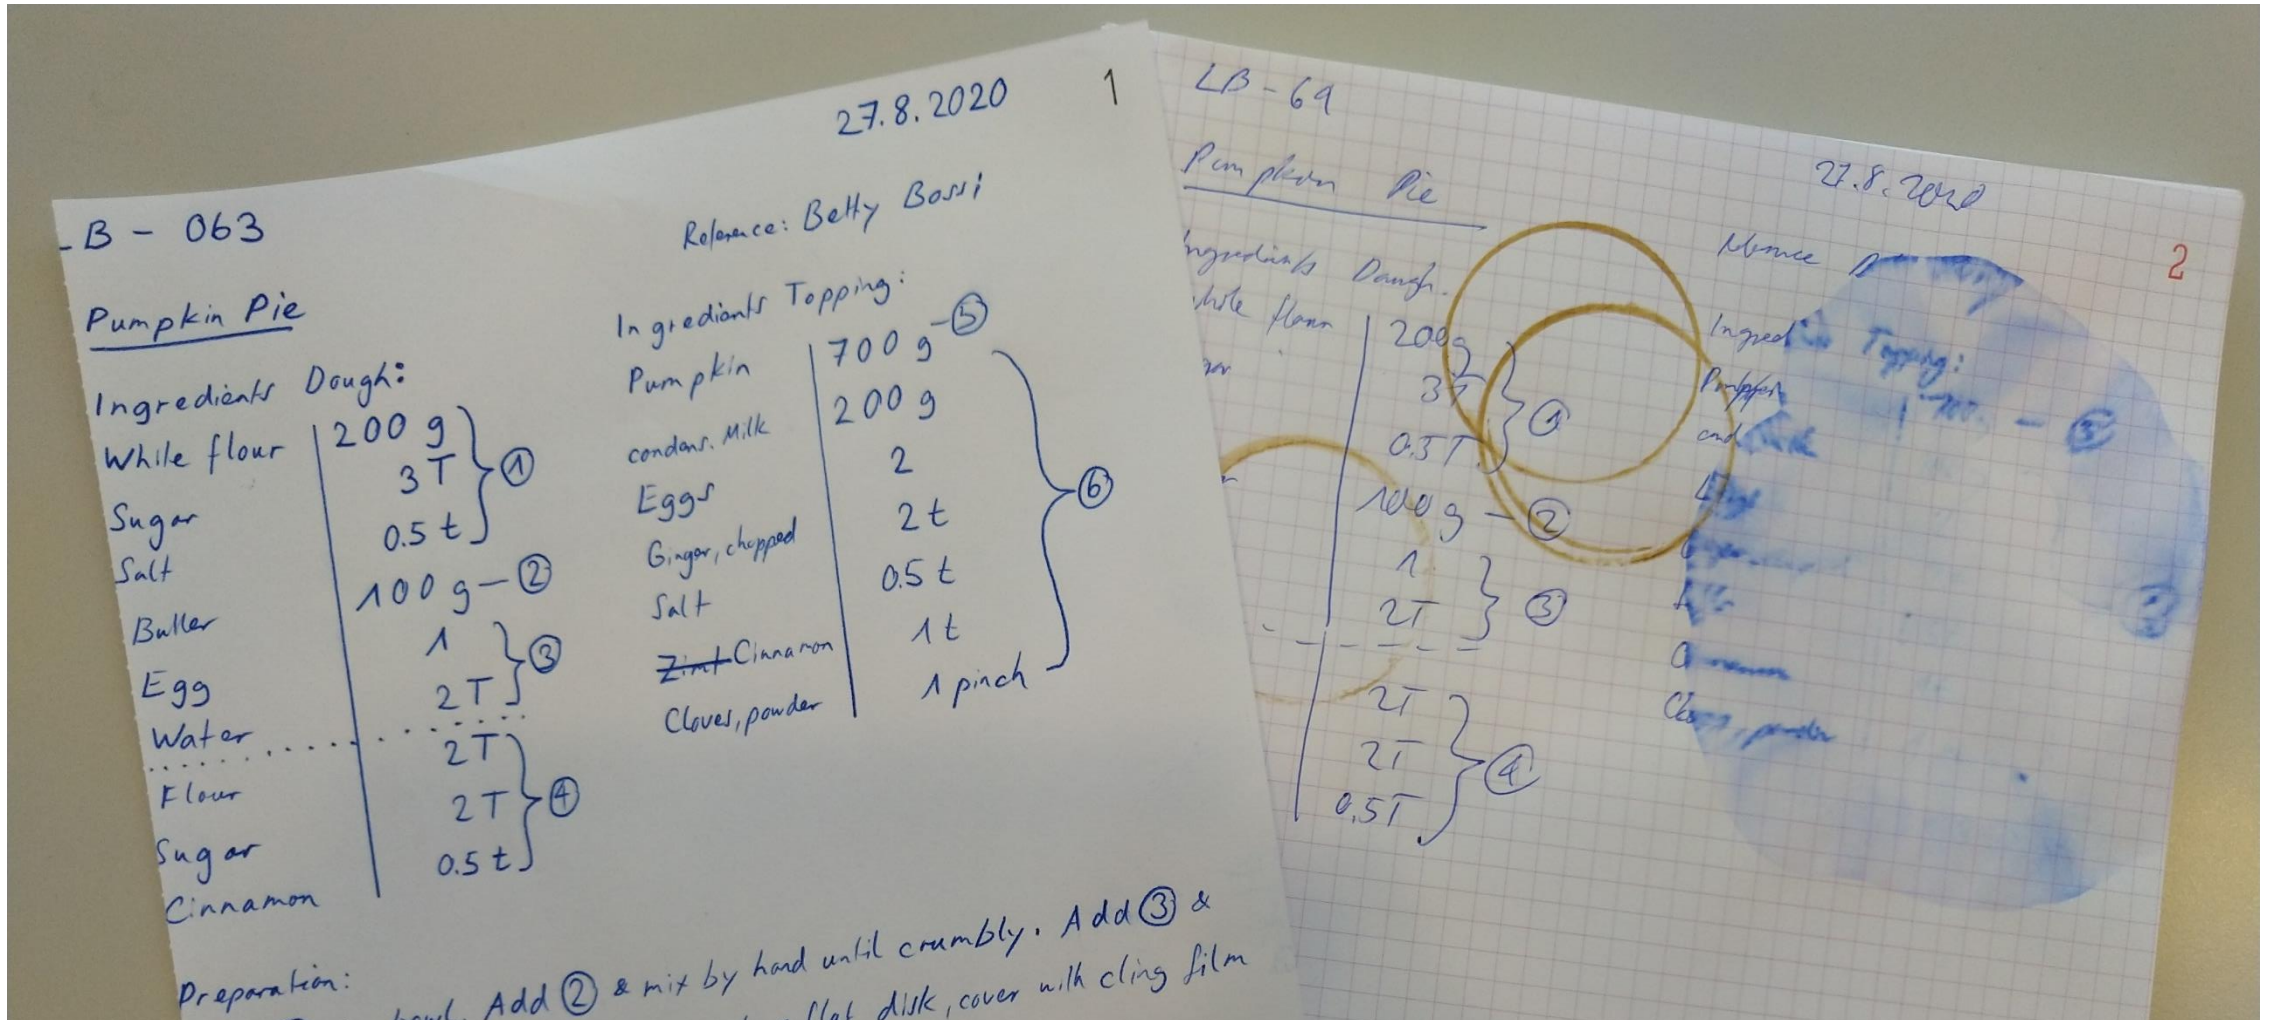 27.8.2020
1
-B - 063
Reference: Betty Bossi
Pumpkin Pie
Ingredients Dough:
White flour 200 g
Sugar 3 T
Salt 0.5 t
1
Butter 100 g - 2
Egg 1
Water 2 T
3
Flour 2 T
Sugar 2 T
Cinnamon 0.5 t
4
Ingredients Topping:
Pumpkin 700 g - 5
condens. Milk 200 g
Eggs 2
Ginger, chopped 2 t
Salt 0.5 t
Zimt Cinnamon 1 t
Cloves, powder 1 pinch
6
Preparation:
bowl. Add 2 & mix by hand until crumbly. Add 3 &
flat disk, cover with cling film
LB - 69
27.8.2020
2
Pumpkin Pie
Ingredients Dough.
white flour 200g
3T
0.5T
1
100 g - 2
1
2T
3
2T
2T
0,5T
4
Topping:
powder